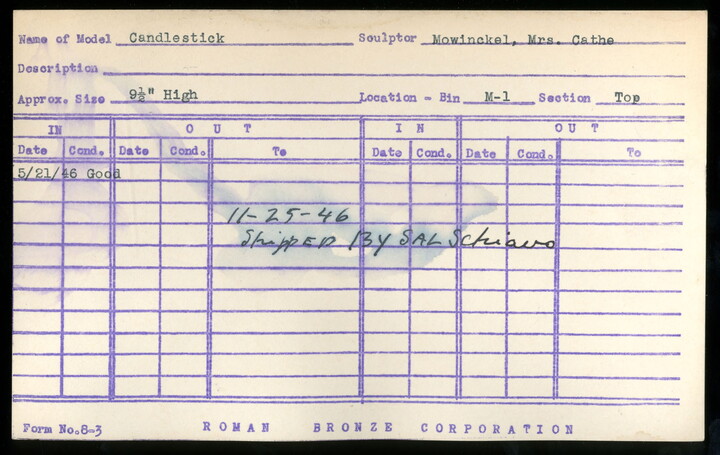 Name of Model Candlestick Sculptor Mowinckel, Mrs. Cathe
Description
Approx. Size 9½" High Location - Bin M-1 Section Top
IN OUT IN OUT
Date Cond. Date Cond. To Date Cond. Date Cond. To
5/21/46 Good
11-25-46
Shipped BY SAL Schiavo
Form No.8-3 ROMAN BRONZE CORPORATION